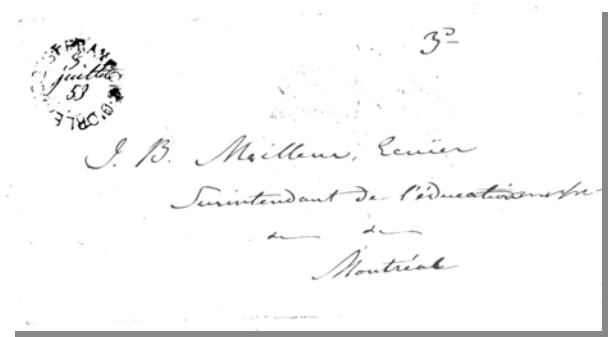 3ᴰ
ST FRANÇ. D'ORLE
5
juillet
53
J. B. Meilleur, Ecuïer
Surintendant de l'éducation &c
de de
Montréal